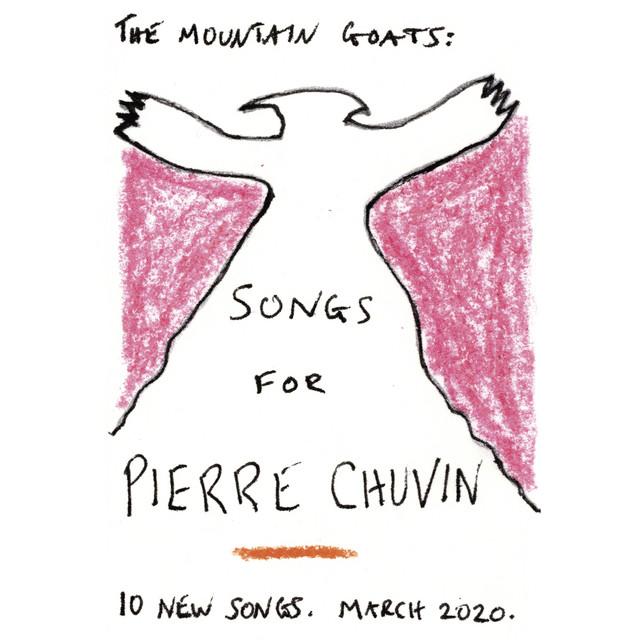 THE MOUNTAIN GOATS:
SONGS
FOR
PIERRE CHUVIN
10 NEW SONGS. MARCH 2020.